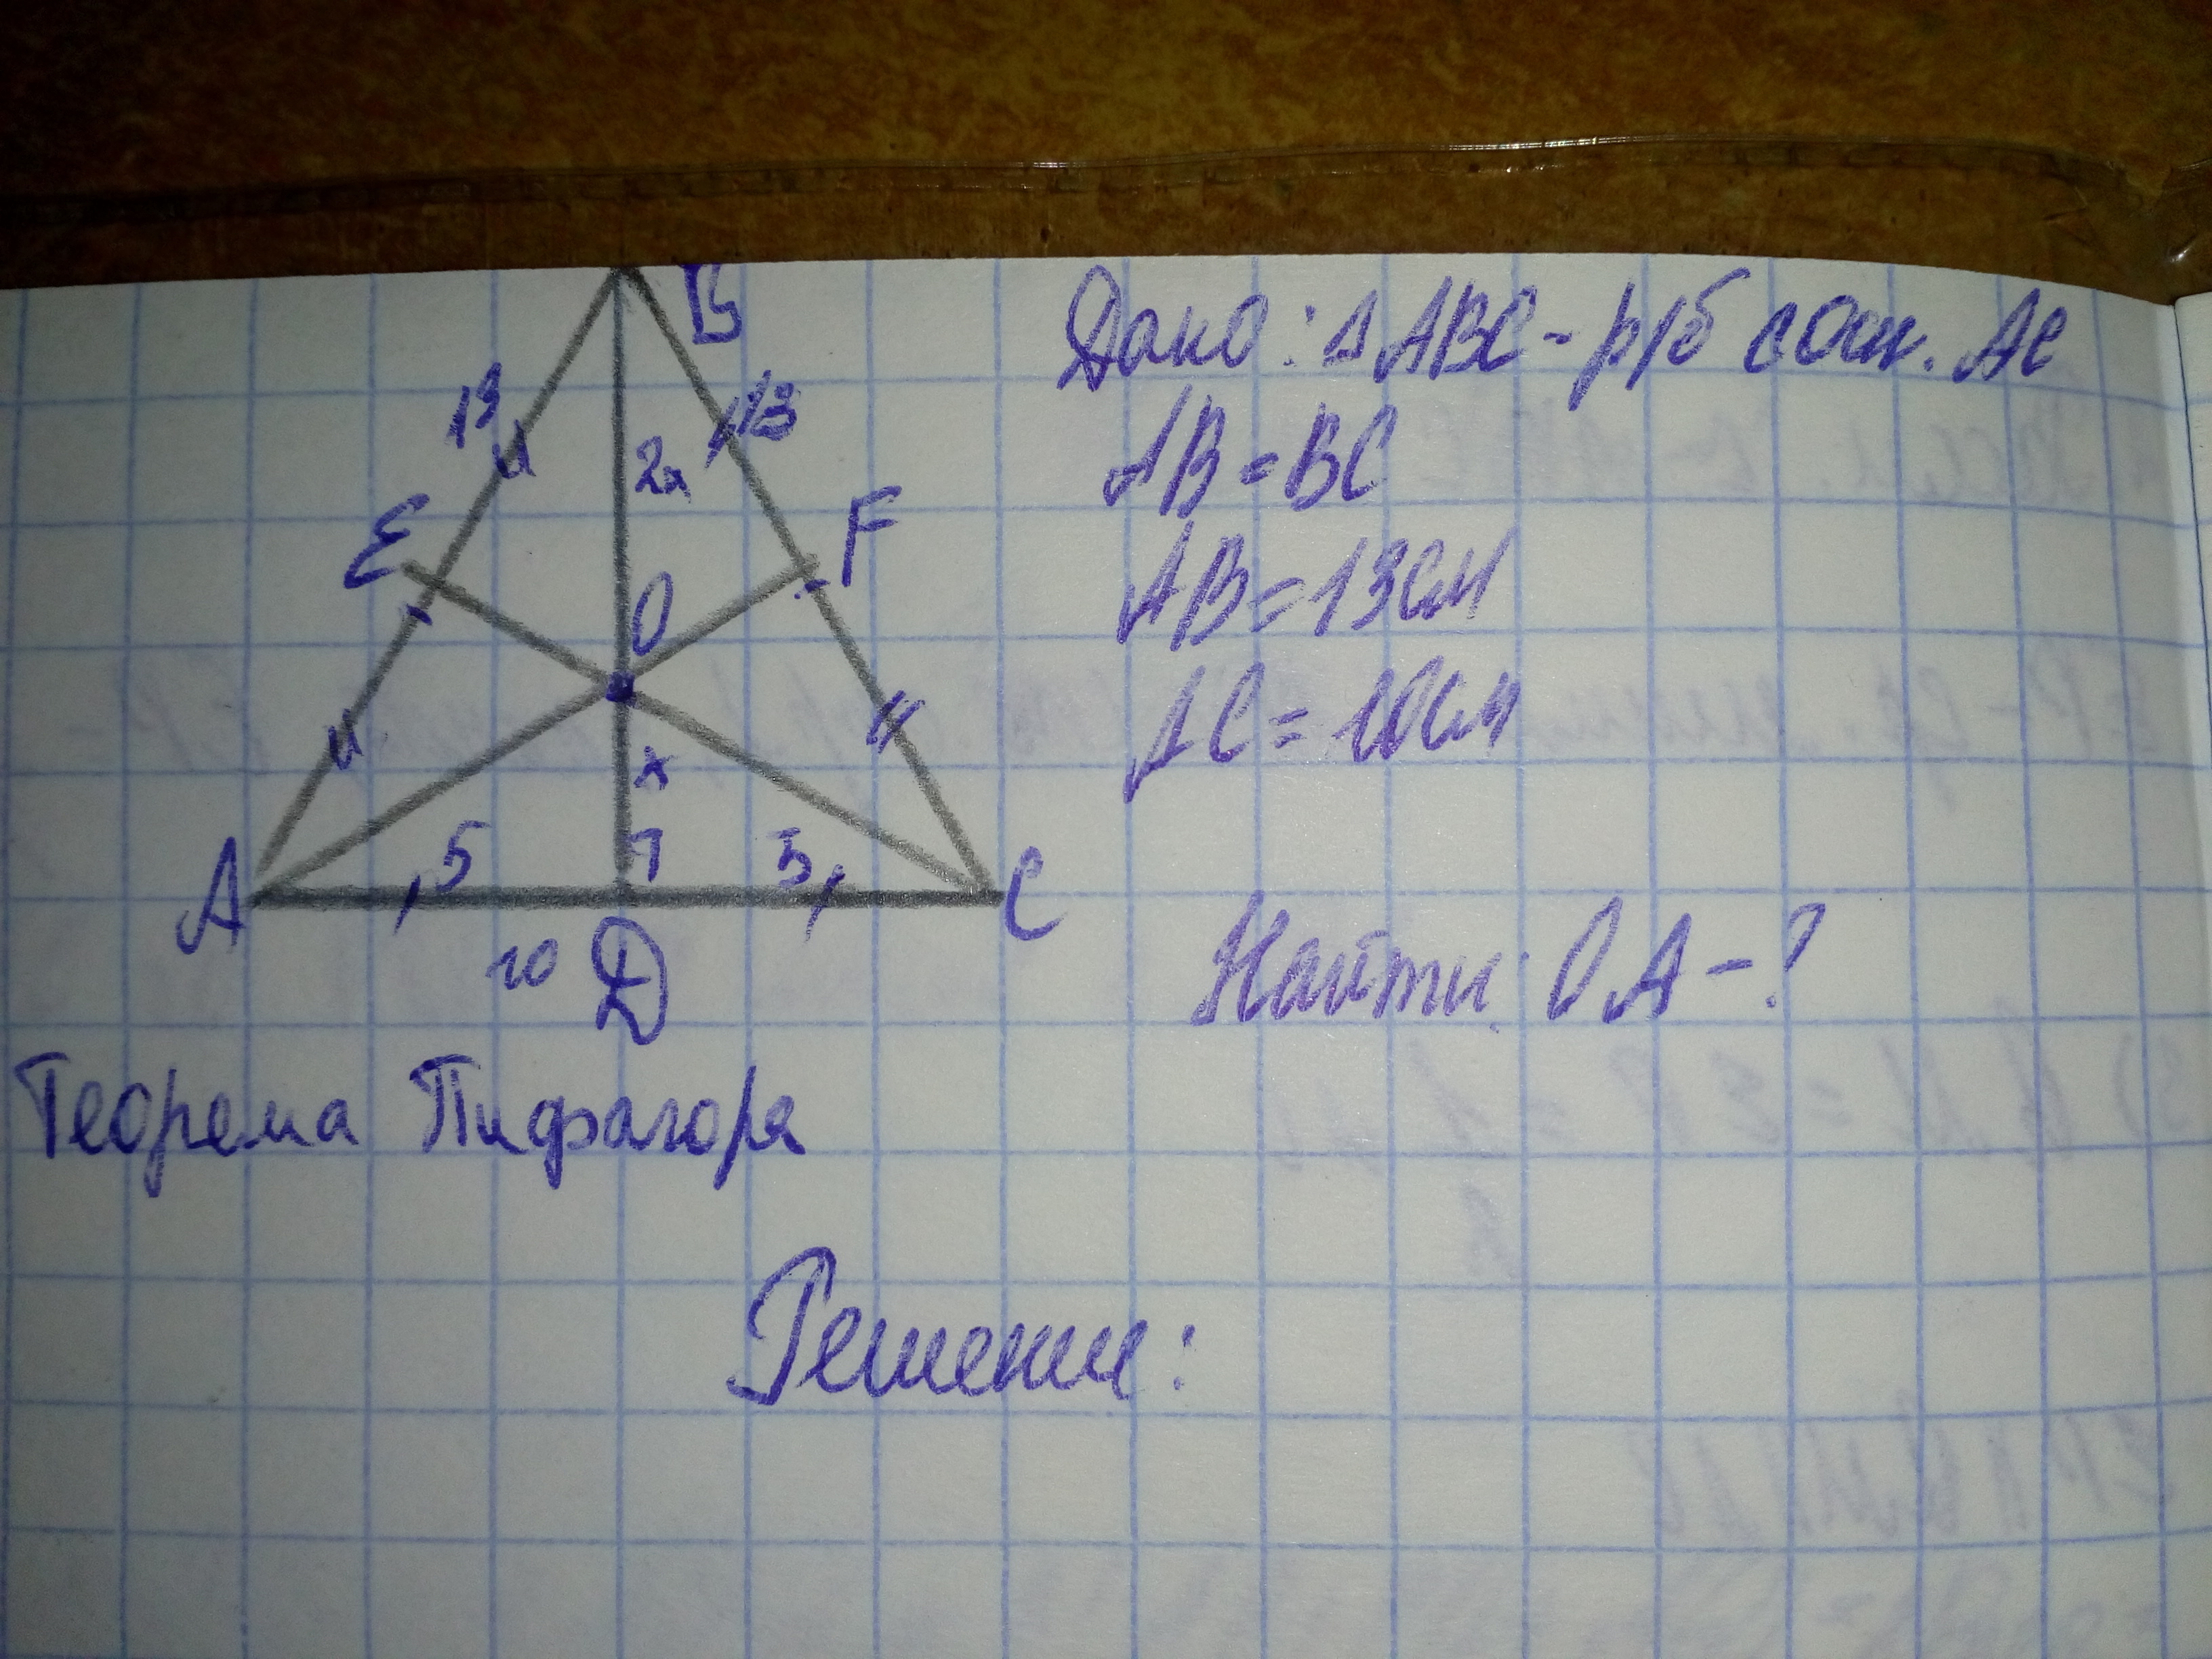 B
13
13
2x
E
F
O
x
A
5
5
C
10
D
Дано: △ABC - р/б с осн. AC
AB = BC
AB = 13см
AC = 10см
Найти: OA - ?
Теорема Пифагора
Решение: